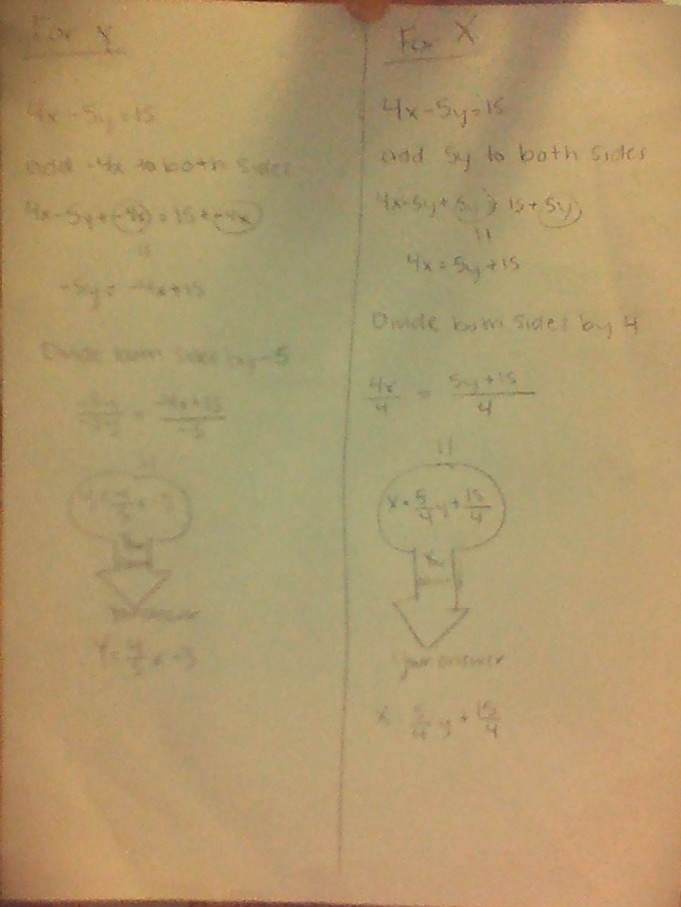 For Y
4x-5y=15
add -4x to both sides
4x-5y+(-4x)=15+(-4x)
=
-5y=-4x+15
Divide both sides by -5
-5y/-5 = -4x+15/-5
=
y=4/5x+-3
Y=4/5x-3
For X
4x-5y=15
add 5y to both sides
4x-5y+5y=15+5y
=
4x=5y+15
Divide both sides by 4
4x/4 = 5y+15/4
=
x=5/4y+15/4
x
your answer
x=5/4y+15/4